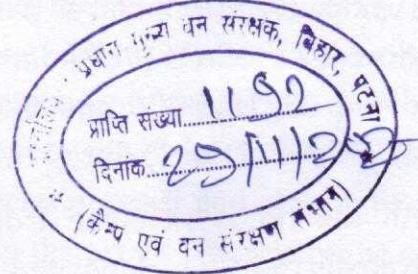 कार्यालय - प्रधान मुख्य वन संरक्षक, बिहार, पटना
प्राप्ति संख्या.....1192
दिनांक.....29/11/2
(कैम्प एवं वन संरक्षण संभाग)